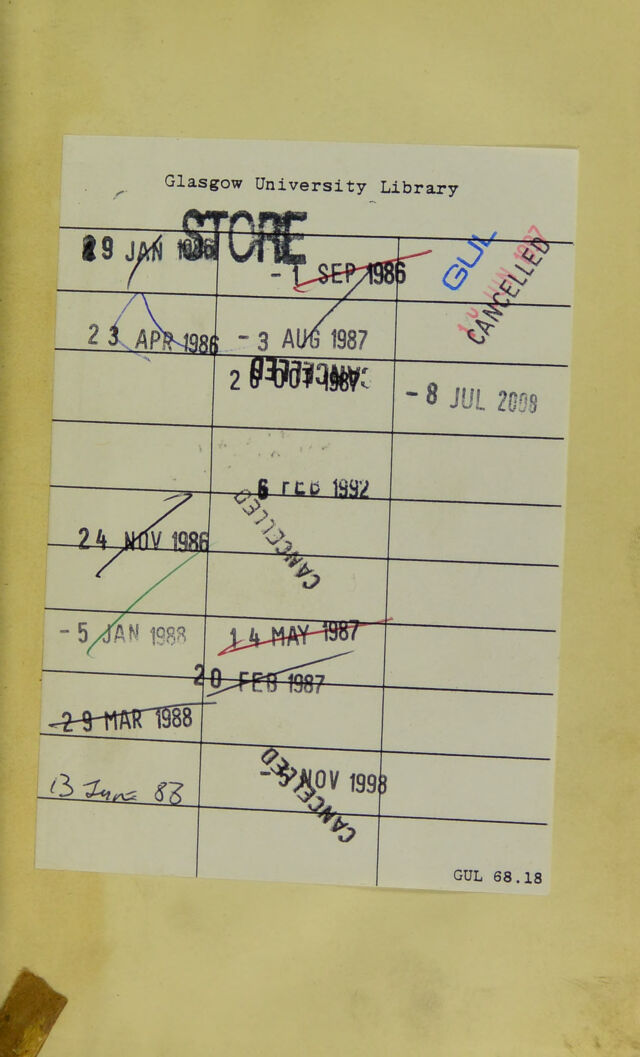 Glasgow University Library
STORE
29 JAN 1986
- 1 SEP 1986
GUL
CANCELLED
23 APR 1986
- 3 AUG 1987
CANCELLED
OCT 1987
- 8 JUL 2008
6 FEB 1992
CANCELLED
24 NOV 1986
- 5 JAN 1988
14 MAY 1987
20 FEB 1987
29 MAR 1988
13 June 88
- 5 NOV 1998
CANCELLED
GUL 68.18